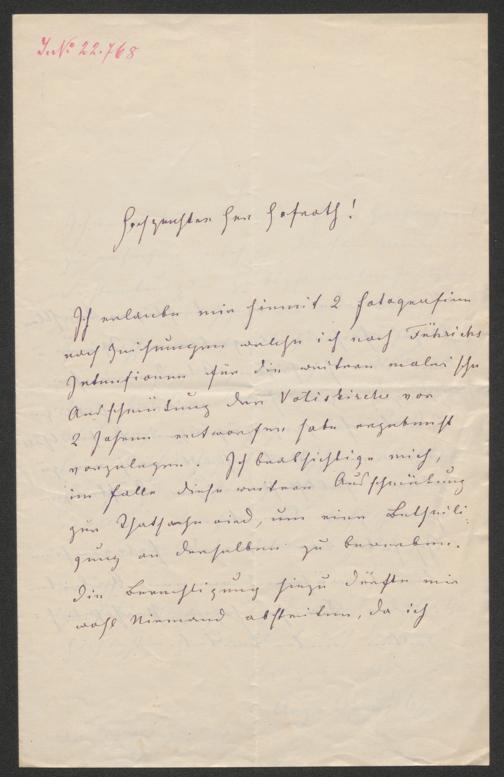 J.N. 22.768
Hochgeehrter Herr Hofrath!
Ich erlaube mir hiemit 2 Fotografien
nach Zeichnungen welche ich nach Führichs
Intensionen für die weitere maleri sche
Ausschmückung der Votivkirche vor
2 Jahren entworfen habe ergebenst
vorzulegen. Ich beabsichtige mich,
im Falle diese weitere Ausschmückung
zur Thatsache wird, um eine Betheili-
gung an derselben zu bewerben.
Die Berechtigung hiezu dürfte mir
wohl Niemand abstreiten, da ich